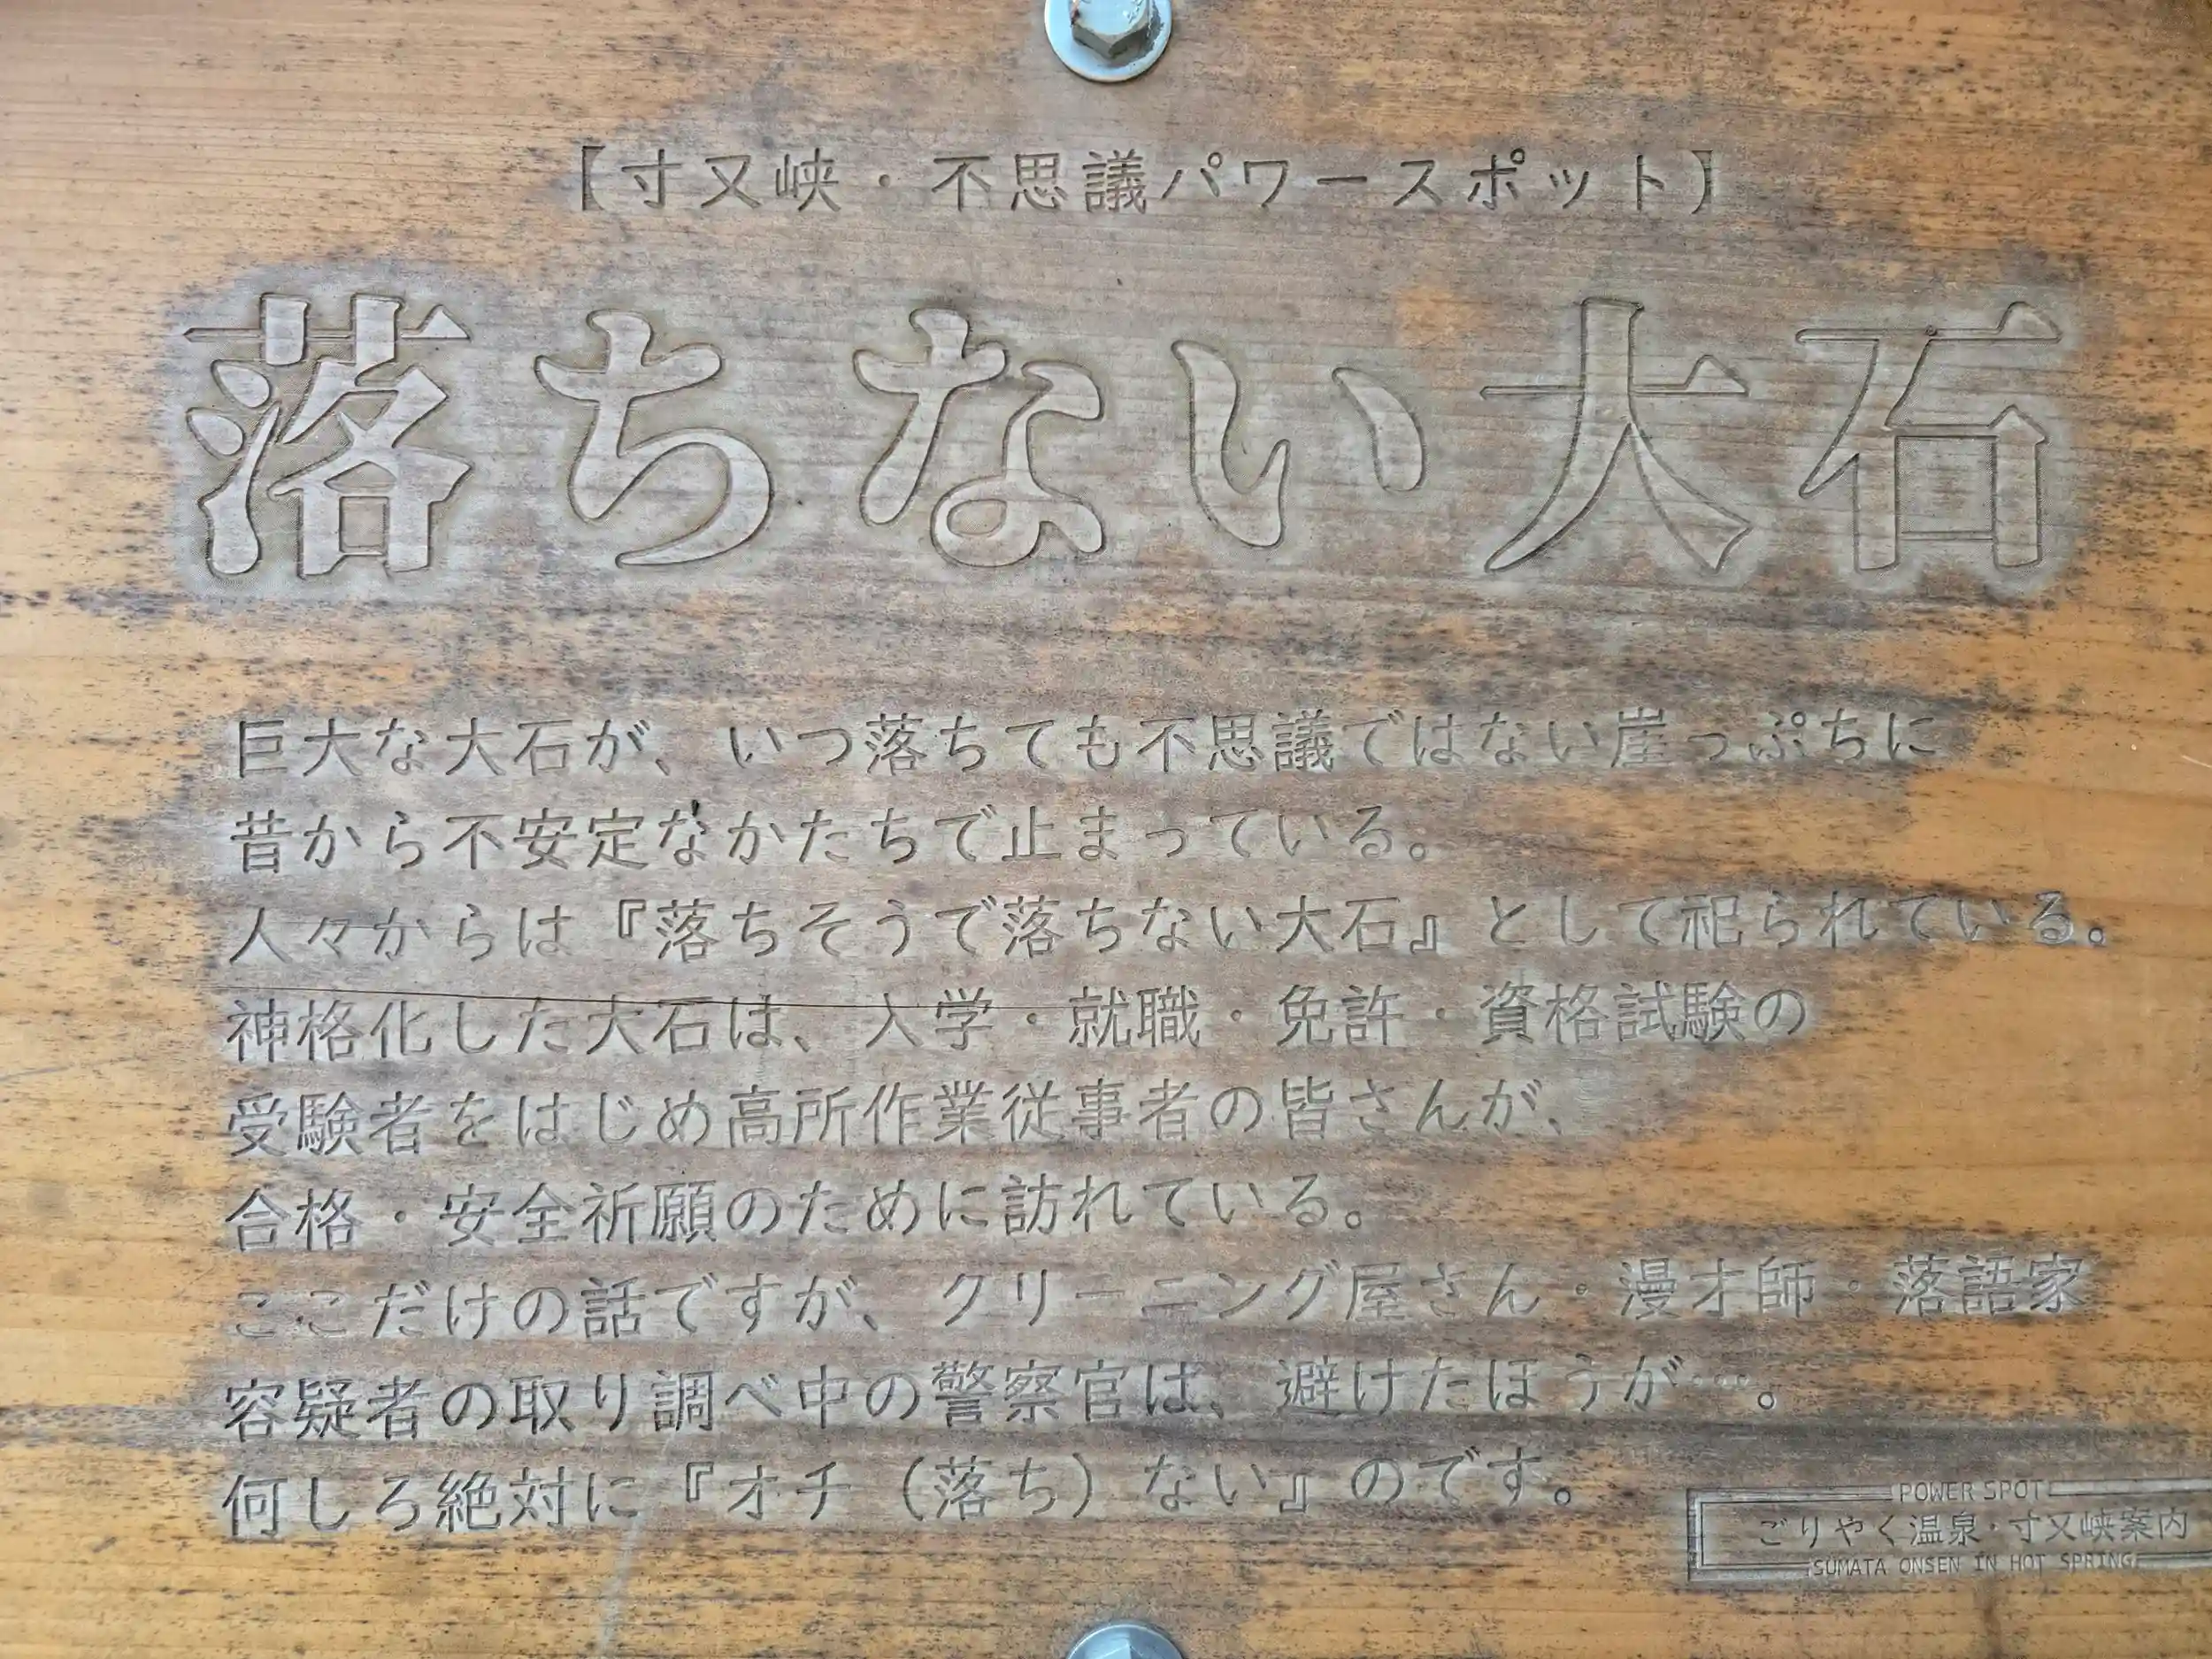 【寸又峡・不思議パワースポット】
落ちない大石
巨大な大石が、いつ落ちても不思議ではない崖っぷちに
昔から不安定なかたちで止まっている。
人々からは『落ちそうで落ちない大石』として祀られている。
神格化した大石は、入学・就職・免許・資格試験の
受験者をはじめ高所作業従事者の皆さんが、
合格・安全祈願のために訪れている。
ここだけの話ですが、クリーニング屋さん・漫才師・落語家
容疑者の取り調べ中の警察官は、避けたほうが…。
何しろ絶対に『オチ（落ち）ない』のです。
POWER SPOT
ごりやく温泉・寸又峡案内
SUMATA ONSEN IN HOT SPRING